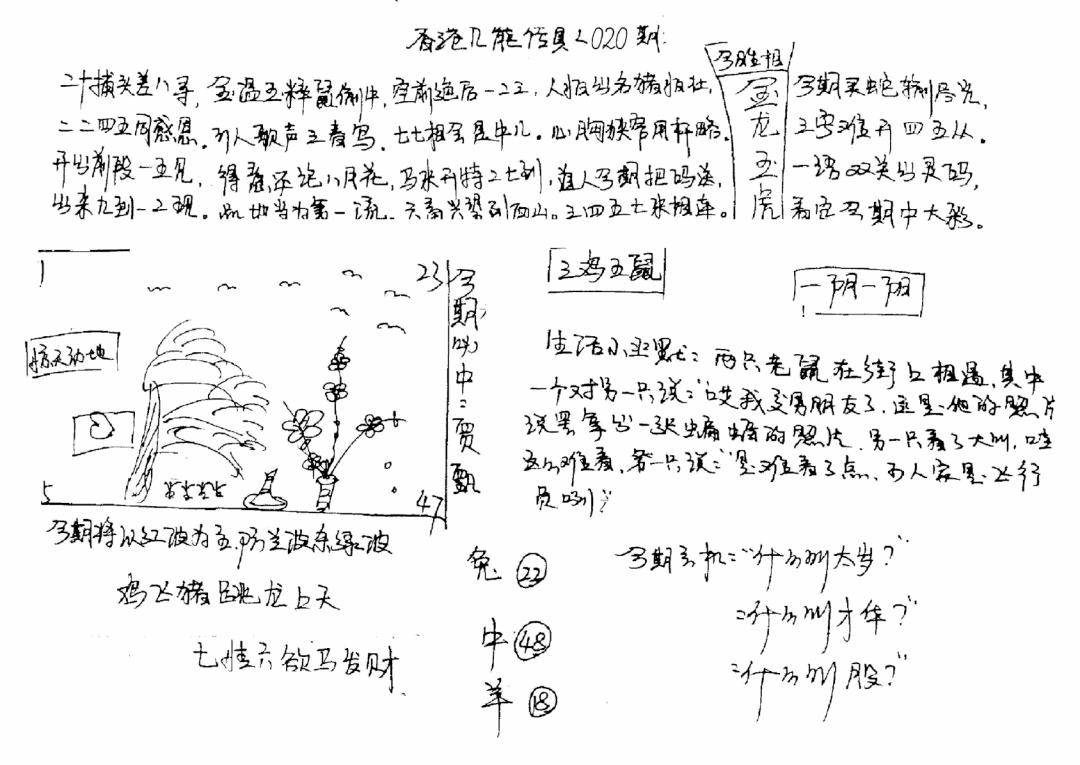 香港几能传具 2020期:
今胜相
金龙玉虎
二十捕头差八寻,金温五粹鼠俐牛,空前绝后一22,人报出名猪报社,
二二四五同感恩,引人歌声主青鸟,七七相会是中儿。心胸狭窄用奸略。
开出前段一五见,得意还记八月花,马来开特22七到,道人今期把码送,
出来九到一2现。此地当为第一流,天高兴望到西山。三四五七来相连。
今期买蛇输尽光,
三零难开四五从。
一语双关出灵码,
肯定今期中大彩。
三鸡五鼠
一阴一阳
1
23
惊天动地
5
47
今期必中:贾甄
生活小幽默:两只老鼠在街上相遇,其中
一个对另一只说:"哎我交男朋友了,这是他的照片
说罢拿出一张蝙蝠的照片,另一只看了大叫,哇
这么难看,第一只说:"是难看了点,可人家是飞行
员啊!"
今期将以红波为主,防兰波杀绿波
鸡飞猪跳龙上天
七情六欲马发财
兔 22
中 48
羊 18
今期玄机:"什么叫太岁?"
:什么叫才华?"
:什么叫股?"